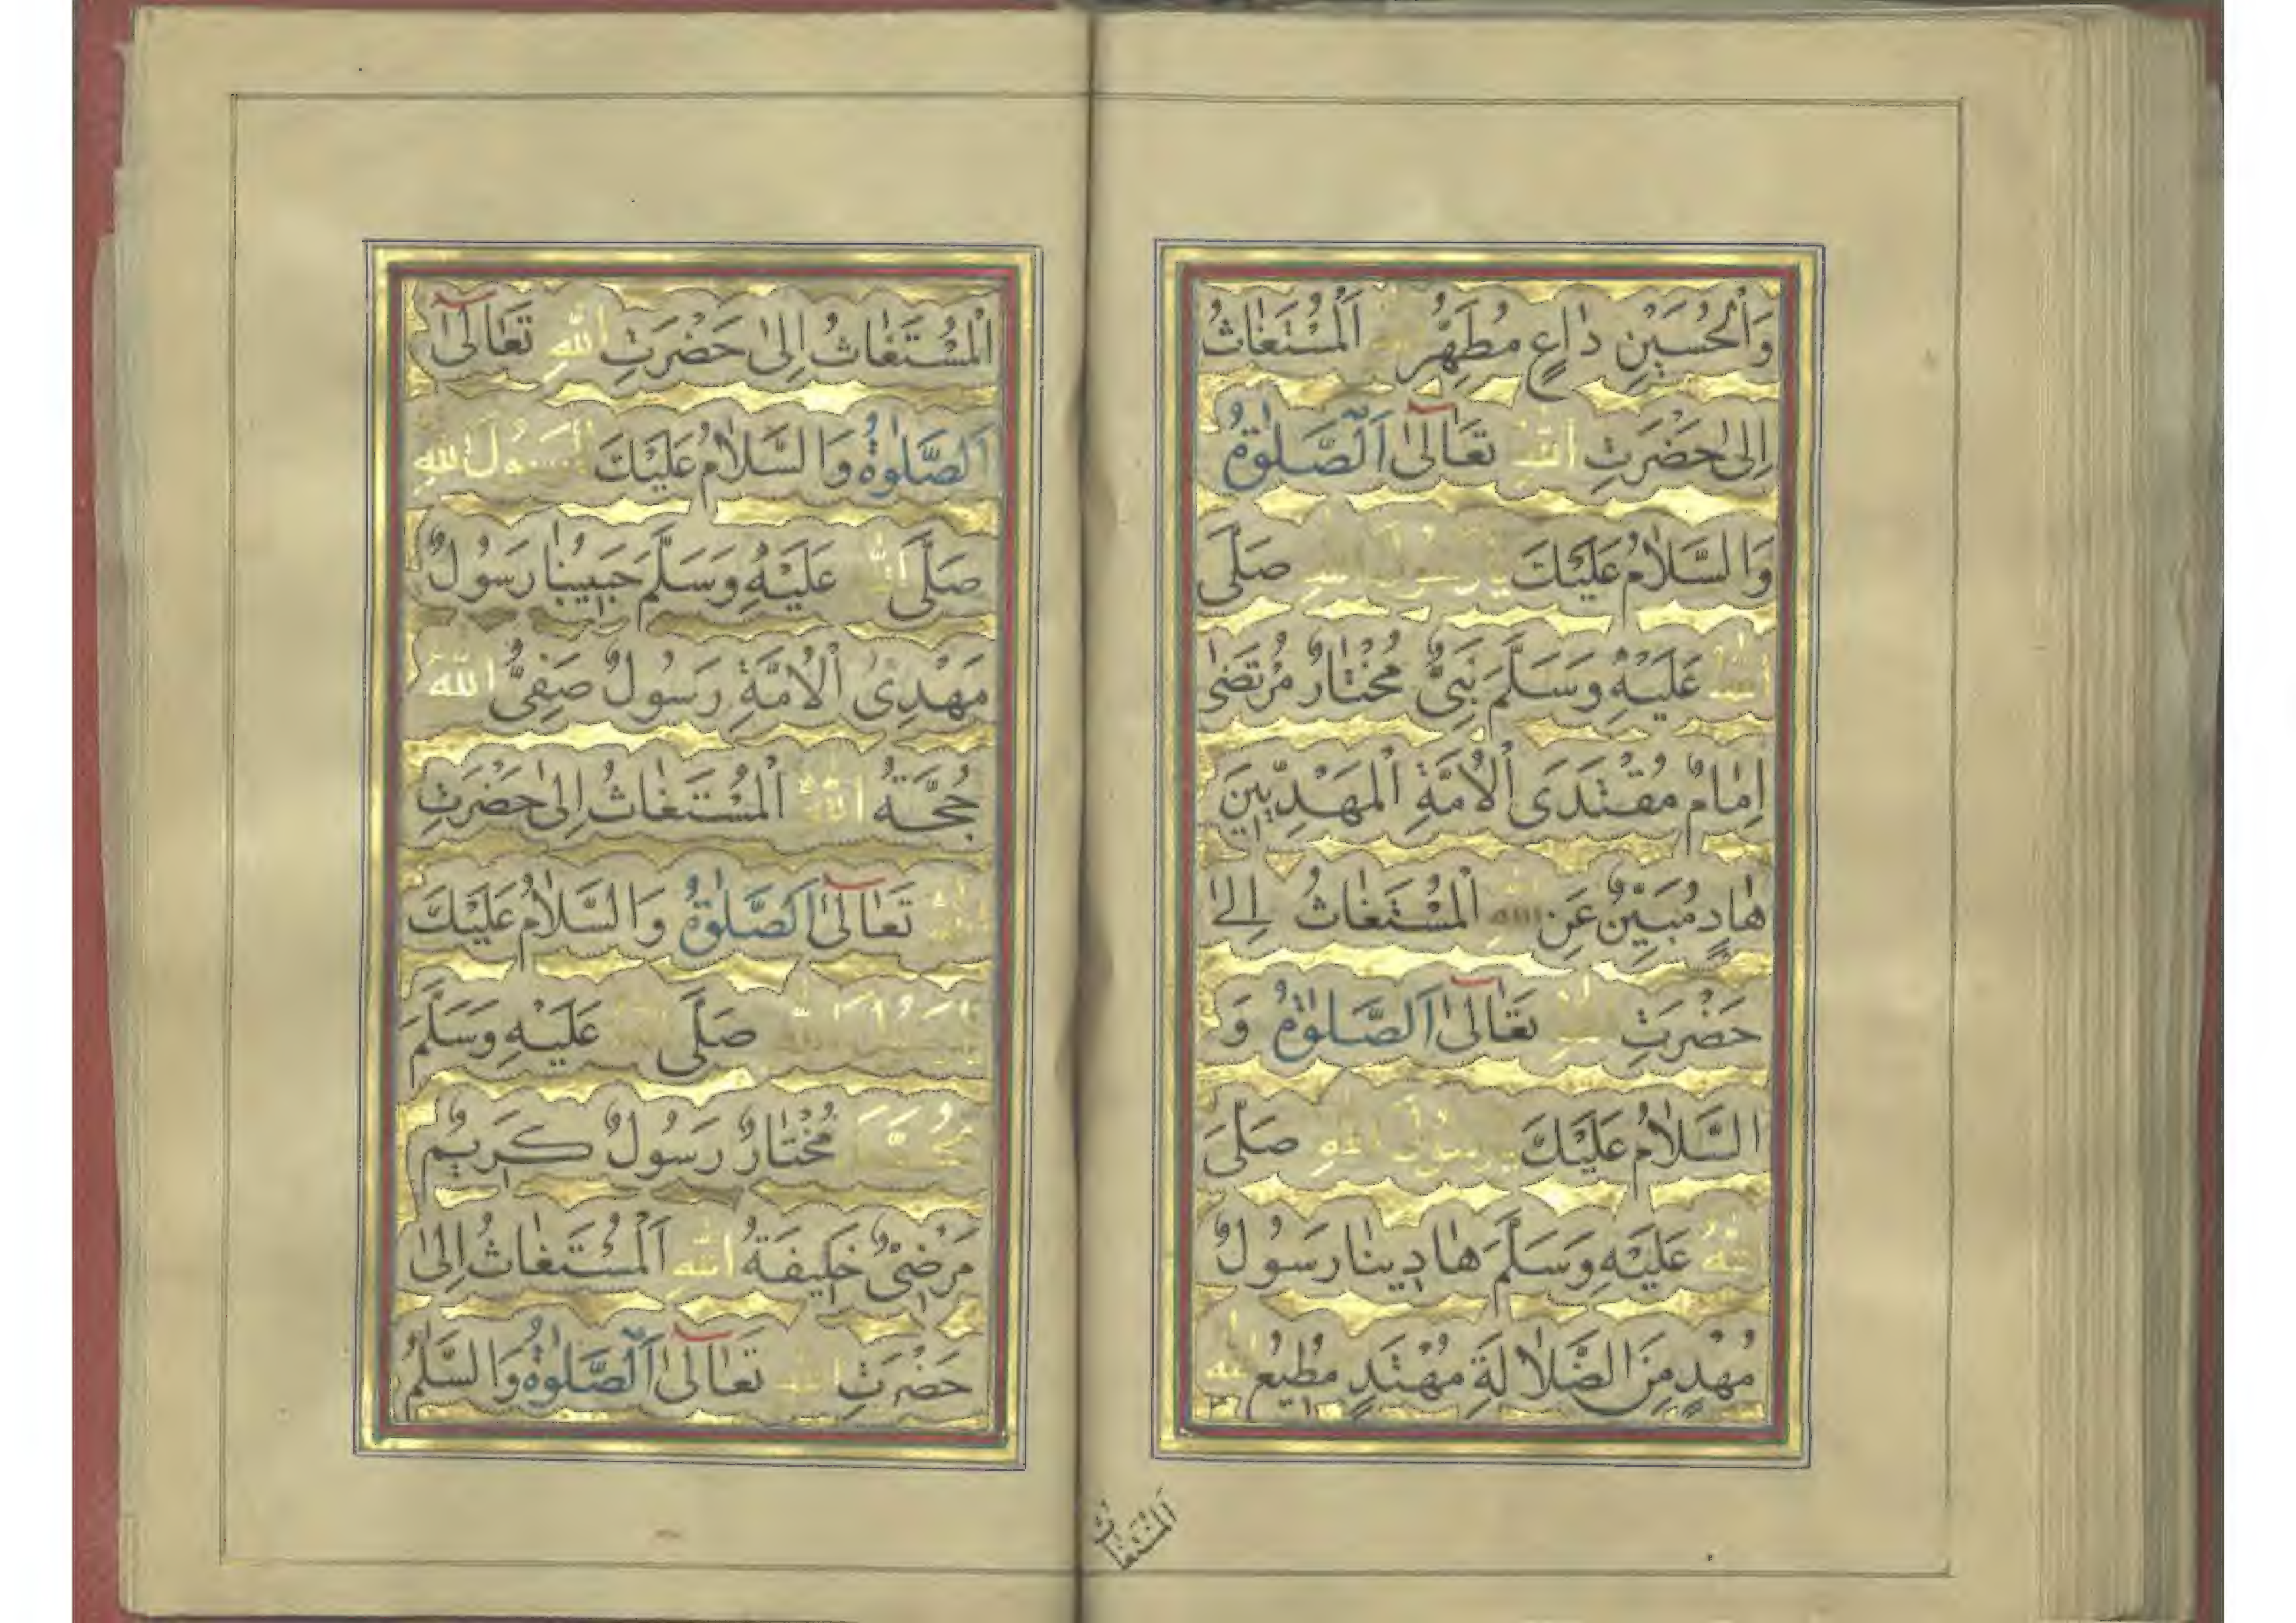 وَالْحُسَيْنِ دَاعٍ مُطَهَّرٌ اَلْمُسْتَغَاثُ
اِلىٰ حَضْرَتِ اللّٰهِ تَعَالىٰ اَلصَّلٰوةُ
وَالسَّلَامُ عَلَيْكَ يَا رَسُولَ اللّٰهِ صَلَّى
اللّٰهُ عَلَيْهِ وَسَلَّمَ نَبِيٌّ مُخْتَارٌ مُرْتَضٰى
اِمَامٌ مُقْتَدَى الْاُمَّةِ الْمَهْدِيِّينَ
هَادٍ مُبَيِّنٌ عَنِ اللّٰهِ الْمُسْتَغَاثُ اِلىٰ
حَضْرَتِ اللّٰهِ تَعَالىٰ اَلصَّلٰوةُ وَ
السَّلَامُ عَلَيْكَ يَا رَسُولَ اللّٰهِ صَلَّى
اللّٰهُ عَلَيْهِ وَسَلَّمَ هَادِينَا رَسُولٌ
مُهْدٍ مِنَ الضَّلَالَةِ مُهْتَدٍ مُطِيعُ اللّٰهِ
اَلْمُسْتَغَاثُ
اَلْمُسْتَغَاثُ اِلىٰ حَضْرَتِ اللّٰهِ تَعَالىٰ
اَلصَّلٰوةُ وَالسَّلَامُ عَلَيْكَ يَا رَسُولَ اللّٰهِ
صَلَّى اللّٰهُ عَلَيْهِ وَسَلَّمَ حَبِيبُنَا رَسُولٌ
مَهْدِىُّ الْاُمَّةِ رَسُولٌ صَفِيُّ اللّٰهِ
حُجَّةُ اللّٰهِ الْمُسْتَغَاثُ اِلىٰ حَضْرَتِ
اللّٰهِ تَعَالىٰ اَلصَّلٰوةُ وَالسَّلَامُ عَلَيْكَ
يَا رَسُولَ اللّٰهِ صَلَّى اللّٰهُ عَلَيْهِ وَسَلَّمَ
مُحَمَّدٌ مُخْتَارٌ رَسُولٌ كَرِيمٌ
مَرْضِىٌّ خَلِيفَةُ اللّٰهِ اَلْمُسْتَغَاثُ اِلىٰ
حَضْرَتِ اللّٰهِ تَعَالىٰ اَلصَّلٰوةُ وَالسَّلٰمُ